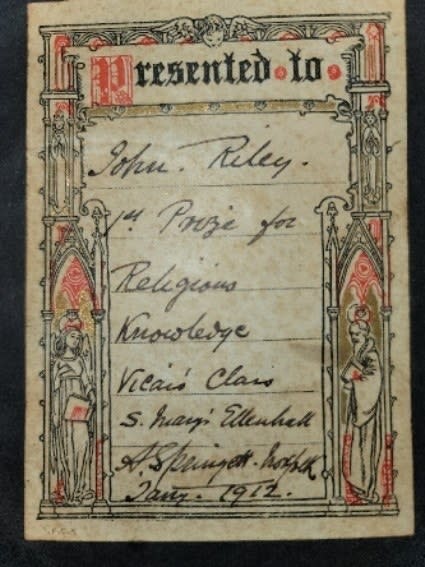 Presented to
John. Riley.
1st Prize for
Religious
Knowledge
Vicar's Class
S. Mary's Ellenhall
A. Springett
Jany. 1912.